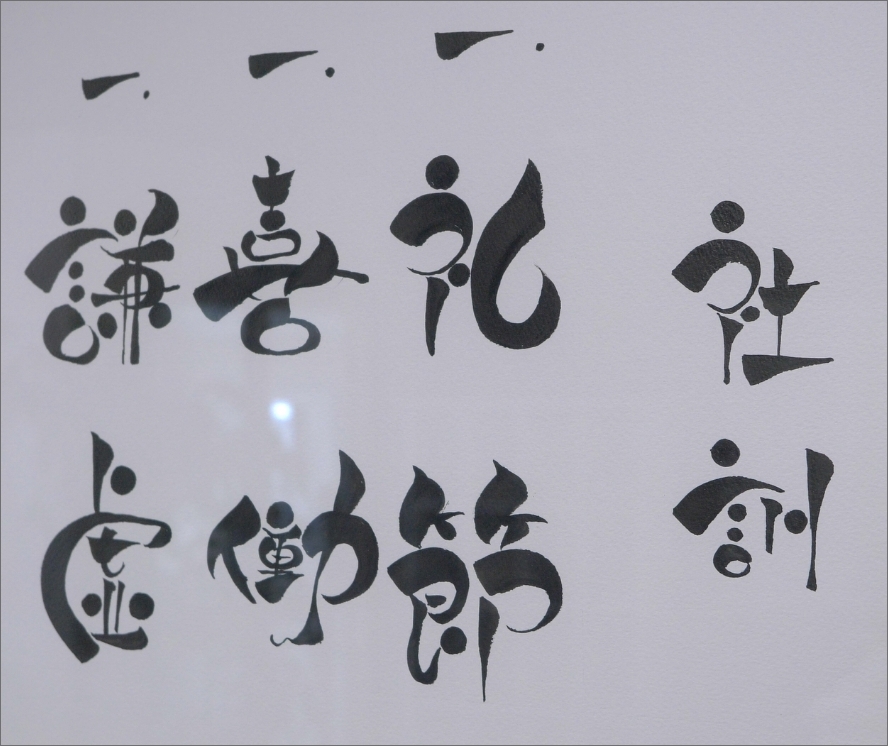 社訓
一.礼節
一.喜働
一.謙虚